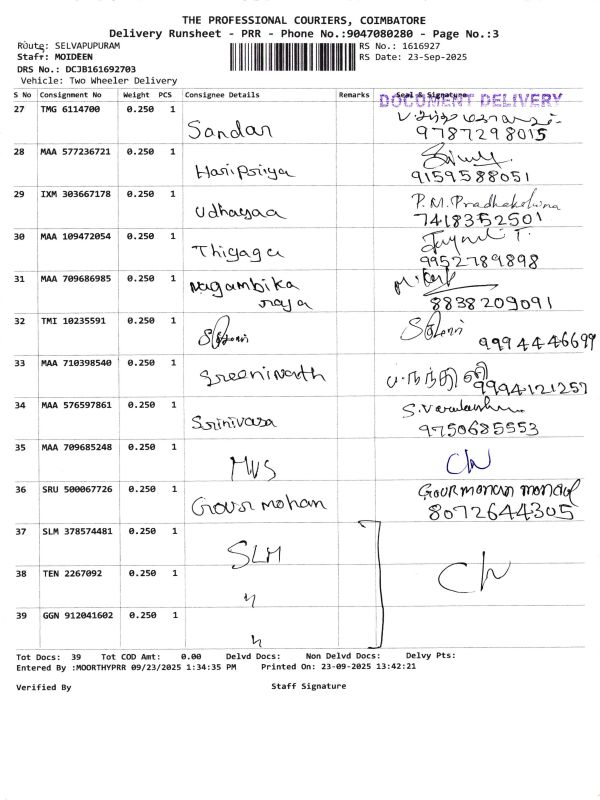 THE PROFESSIONAL COURIERS, COIMBATORE
Delivery Runsheet - PRR - Phone No.:9047080280 - Page No.:3
Route: SELVAPUPURAM
RS No.: 1616927
Staff: MOIDEEN
RS Date: 23-Sep-2025
DRS No.: DCJB161692703
Vehicle: Two Wheeler Delivery
S No Consignment No Weight PCS Consignee Details Remarks Seal & Signature
DOCUMENT DELIVERY
27 TMG 6114700 0.250 1
Sandar
9787298015
28 MAA 577236721 0.250 1
Haripriya
9159588051
29 IXM 303667178 0.250 1
Udhayaa
P.M. Pradhakshna
7418352501
30 MAA 109472054 0.250 1
Thiyagu
9952789898
31 MAA 709686985 0.250 1
Nagambika
raja
8838209091
32 TMI 10235591 0.250 1
9994446699
33 MAA 710398540 0.250 1
Sreenivasth
ப.நந்தினி
9994121257
34 MAA 576597861 0.250 1
Srinivasa
9750685553
35 MAA 709685248 0.250 1
MWS
36 SRU 500067726 0.250 1
Gour mohan
Gour mohan mondal
8072644305
37 SLM 378574481 0.250 1
SLM
38 TEN 2267092 0.250 1
39 GGN 912041602 0.250 1
Tot Docs: 39 Tot COD Amt: 0.00 Delvd Docs: Non Delvd Docs: Delvy Pts:
Entered By :MOORTHYPRR 09/23/2025 1:34:35 PM Printed On: 23-09-2025 13:42:21
Verified By Staff Signature